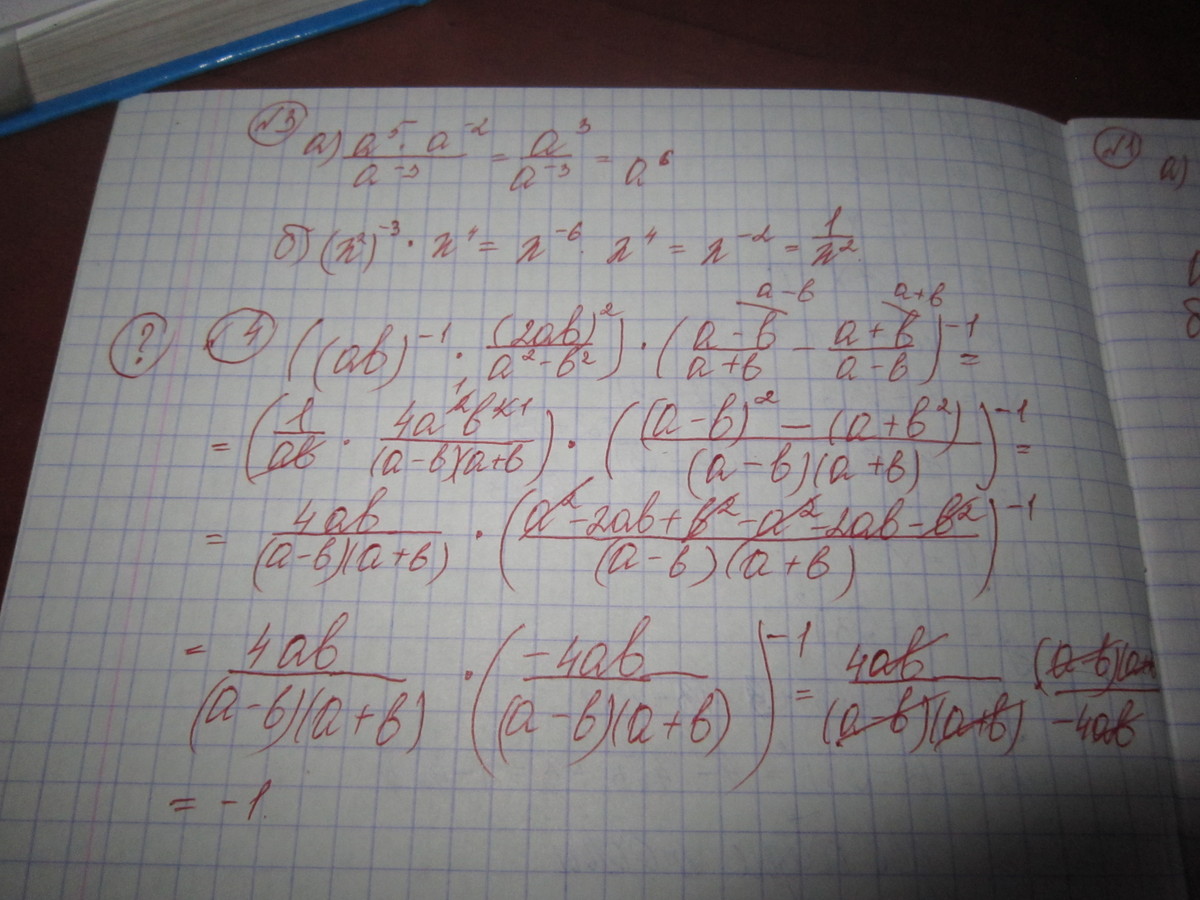 №3 а) (a⁵ · a⁻²)/a⁻³ = a³/a⁻³ = a⁶
б) (x²)⁻³ · x⁴ = x⁻⁶ · x⁴ = x⁻² = 1/x²
a-b a+b
? №4 ((ab)⁻¹ · (2ab)²/(a²-b²)) · ((a-b)/(a+b) - (a+b)/(a-b))⁻¹ =
= (1/ab · 4a²b²/((a-b)(a+b))) · (((a-b)² - (a+b²))/((a-b)(a+b)))⁻¹ =
= 4ab/((a-b)(a+b)) · ((a²-2ab+b²-a²-2ab-b²)/((a-b)(a+b)))⁻¹
= 4ab/((a-b)(a+b)) · (-4ab/((a-b)(a+b)))⁻¹ = 4ab/((a-b)(a+b)) (a-b)(a+/-4ab
= -1.
№1
а)